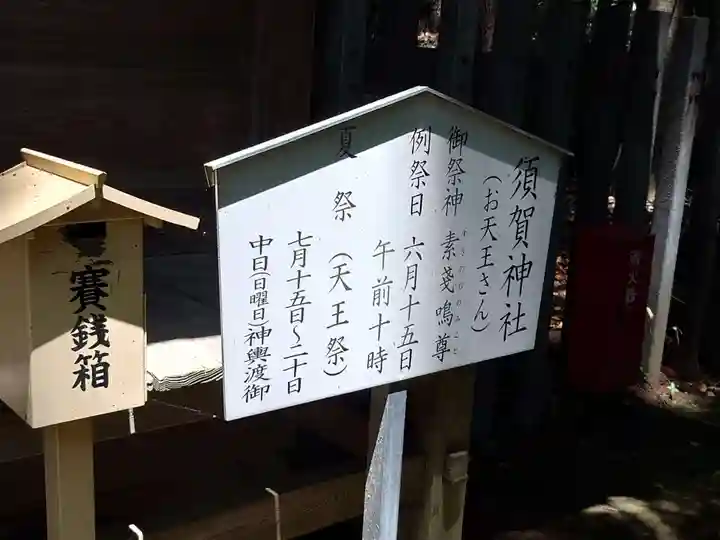 須賀神社
(お天王さん)
御祭神 素戔嗚尊
例祭日 六月十五日
午前十時
夏祭(天王祭)
七月十五日～二十日
中日(日曜日)神輿渡御
賽銭箱
消火器